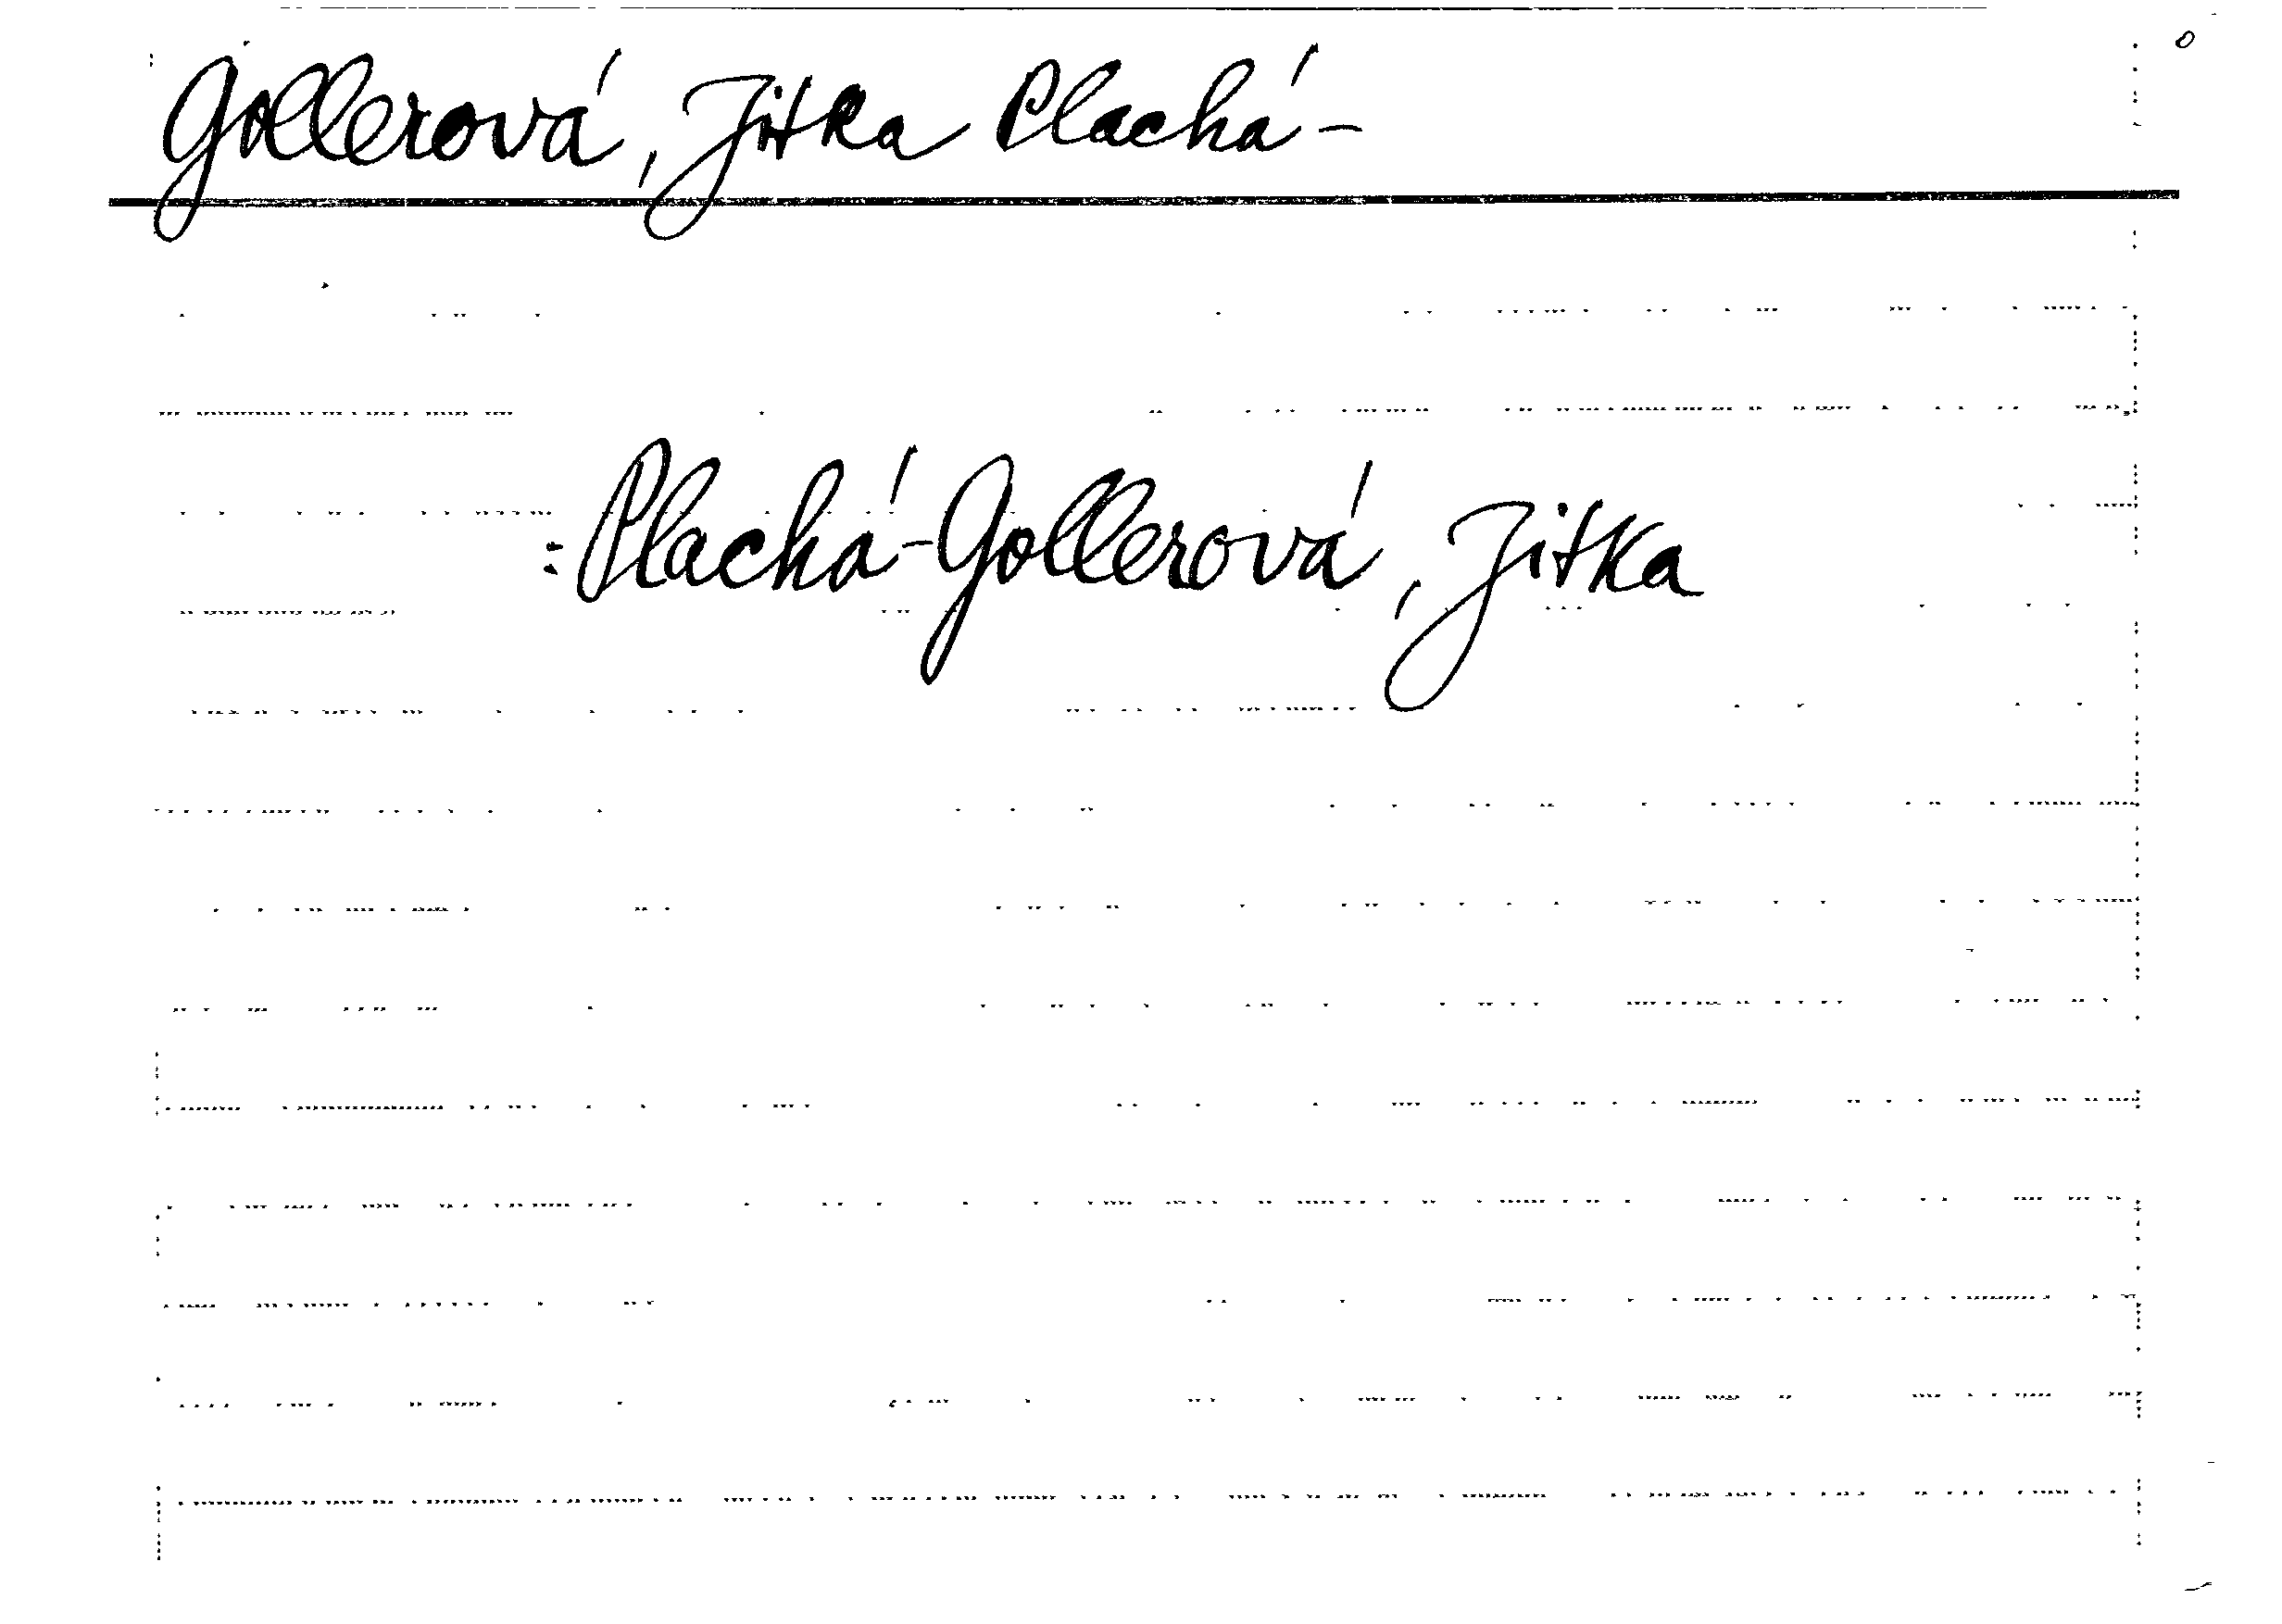 Gollerová, Jitka Plachá-
:Plachá-Gollerová, Jitka